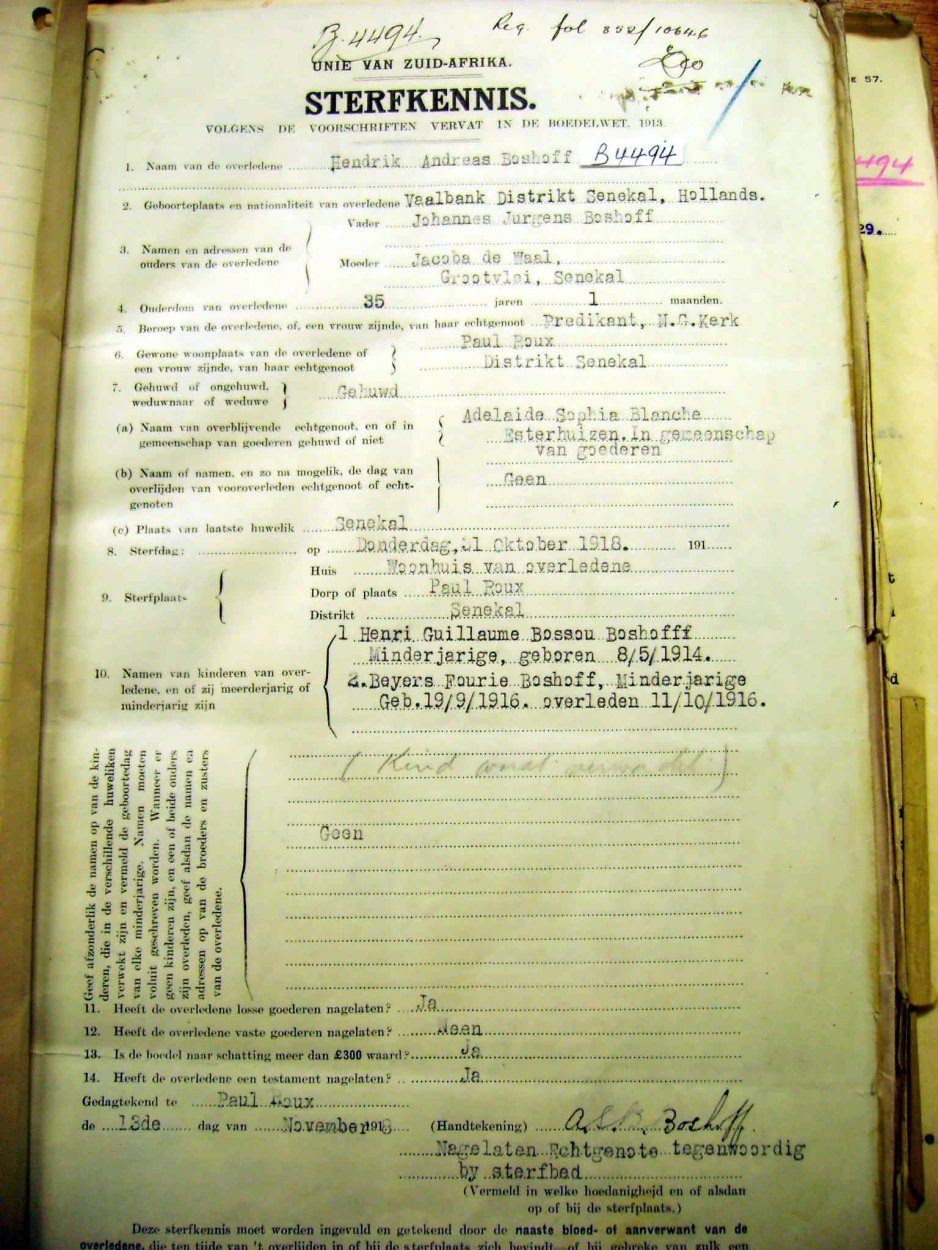 B.4494. Reg. fol 802/10646
UNIE VAN ZUID-AFRIKA.
STERFKENNIS.
VOLGENS DE VOORSCHRIFTEN VERVAT IN DE BOEDELWET, 1913.
1. Naam van de overledene Hendrik Andreas Boshoff B4494
2. Geboorteplaats en nationaliteit van overledene Vaalbank Distrikt Senekal, Hollands.
Vader Johannes Jurgens Boshoff
3. Namen en adressen van de
ouders van de overledene
Moeder Jacoba de Waal,
Grootvlei, Senekal
4. Ouderdom van overledene 35 jaren 1 maanden.
5. Beroep van de overledene, of, een vrouw zijnde, van haar echtgenoot Predikant, N.G.Kerk
6. Gewone woonplaats van de overledene of
een vrouw zijnde, van haar echtgenoot
Paul Roux
Distrikt Senekal
7. Gehuwd of ongehuwd,
weduwnaar of weduwe
Gehuwd
(a) Naam van overblijvende echtgenoot, en of in
gemeenschap van goederen gehuwd of niet
Adelaide Sophia Blanche
Esterhuizen.In gemeenschap
van goederen
(b) Naam of namen, en zo na mogelik, de dag van
overlijden van vooroverleden echtgenoot of echt-
genoten
Geen
(c) Plaats van laatste huwelik Senekal
8. Sterfdag: op Donderdag, 31 Oktober 1918. 191
9. Sterfplaats
Huis Woonhuis van overledene
Dorp of plaats Paul Roux
Distrikt Senekal
10. Namen van kinderen van over-
ledene, en of zij meerderjarig of
minderjarig zijn
1 Henri Guillaume Bossou Boshofff
Minderjarige, geboren 8/5/1914.
2.Beyers Fourie Boshoff, Minderjarige
Geb.19/9/1916. overleden 11/10/1916.
(Kind word verwacht)
Geef afzonderlik de namen op van de kin-
deren, die in de verschillende huweliken
verwekt zijn en vermeld de geboortedag
van elke minderjarige. Namen moeten
voluit geschreven worden. Wanneer er
geen kinderen zijn, en een of beide ouders
zijn overleden, geef alsdan de namen en
adressen op van de broeders en zusters
van de overledene.
Geen
11. Heeft de overledene losse goederen nagelaten? Ja
12. Heeft de overledene vaste goederen nagelaten? Neen
13. Is de boedel naar schatting meer dan £300 waard? Ja
14. Heeft de overledene een testament nagelaten? Ja
Gedagtekend te Paul Roux
de 13de dag van November 1918 (Handtekening) Boshoff
Nagelaten Echtgenote tegenwoordig
by sterfbed
(Vermeld in welke hoedanigheid en of alsdan
op of bij de sterfplaats.)
Deze sterfkennis moet worden ingevuld en getekend door de naaste bloed- of aanverwant van de
overledene, die ten tijde van 't overlijden in of bij de sterfplaats zich bevindt, of bij gebreke van zulk een
E 57.
4494
29.